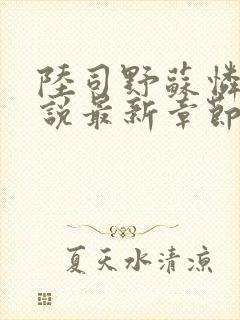 陸司野蘇憐
說最新章節
夏天水清涼